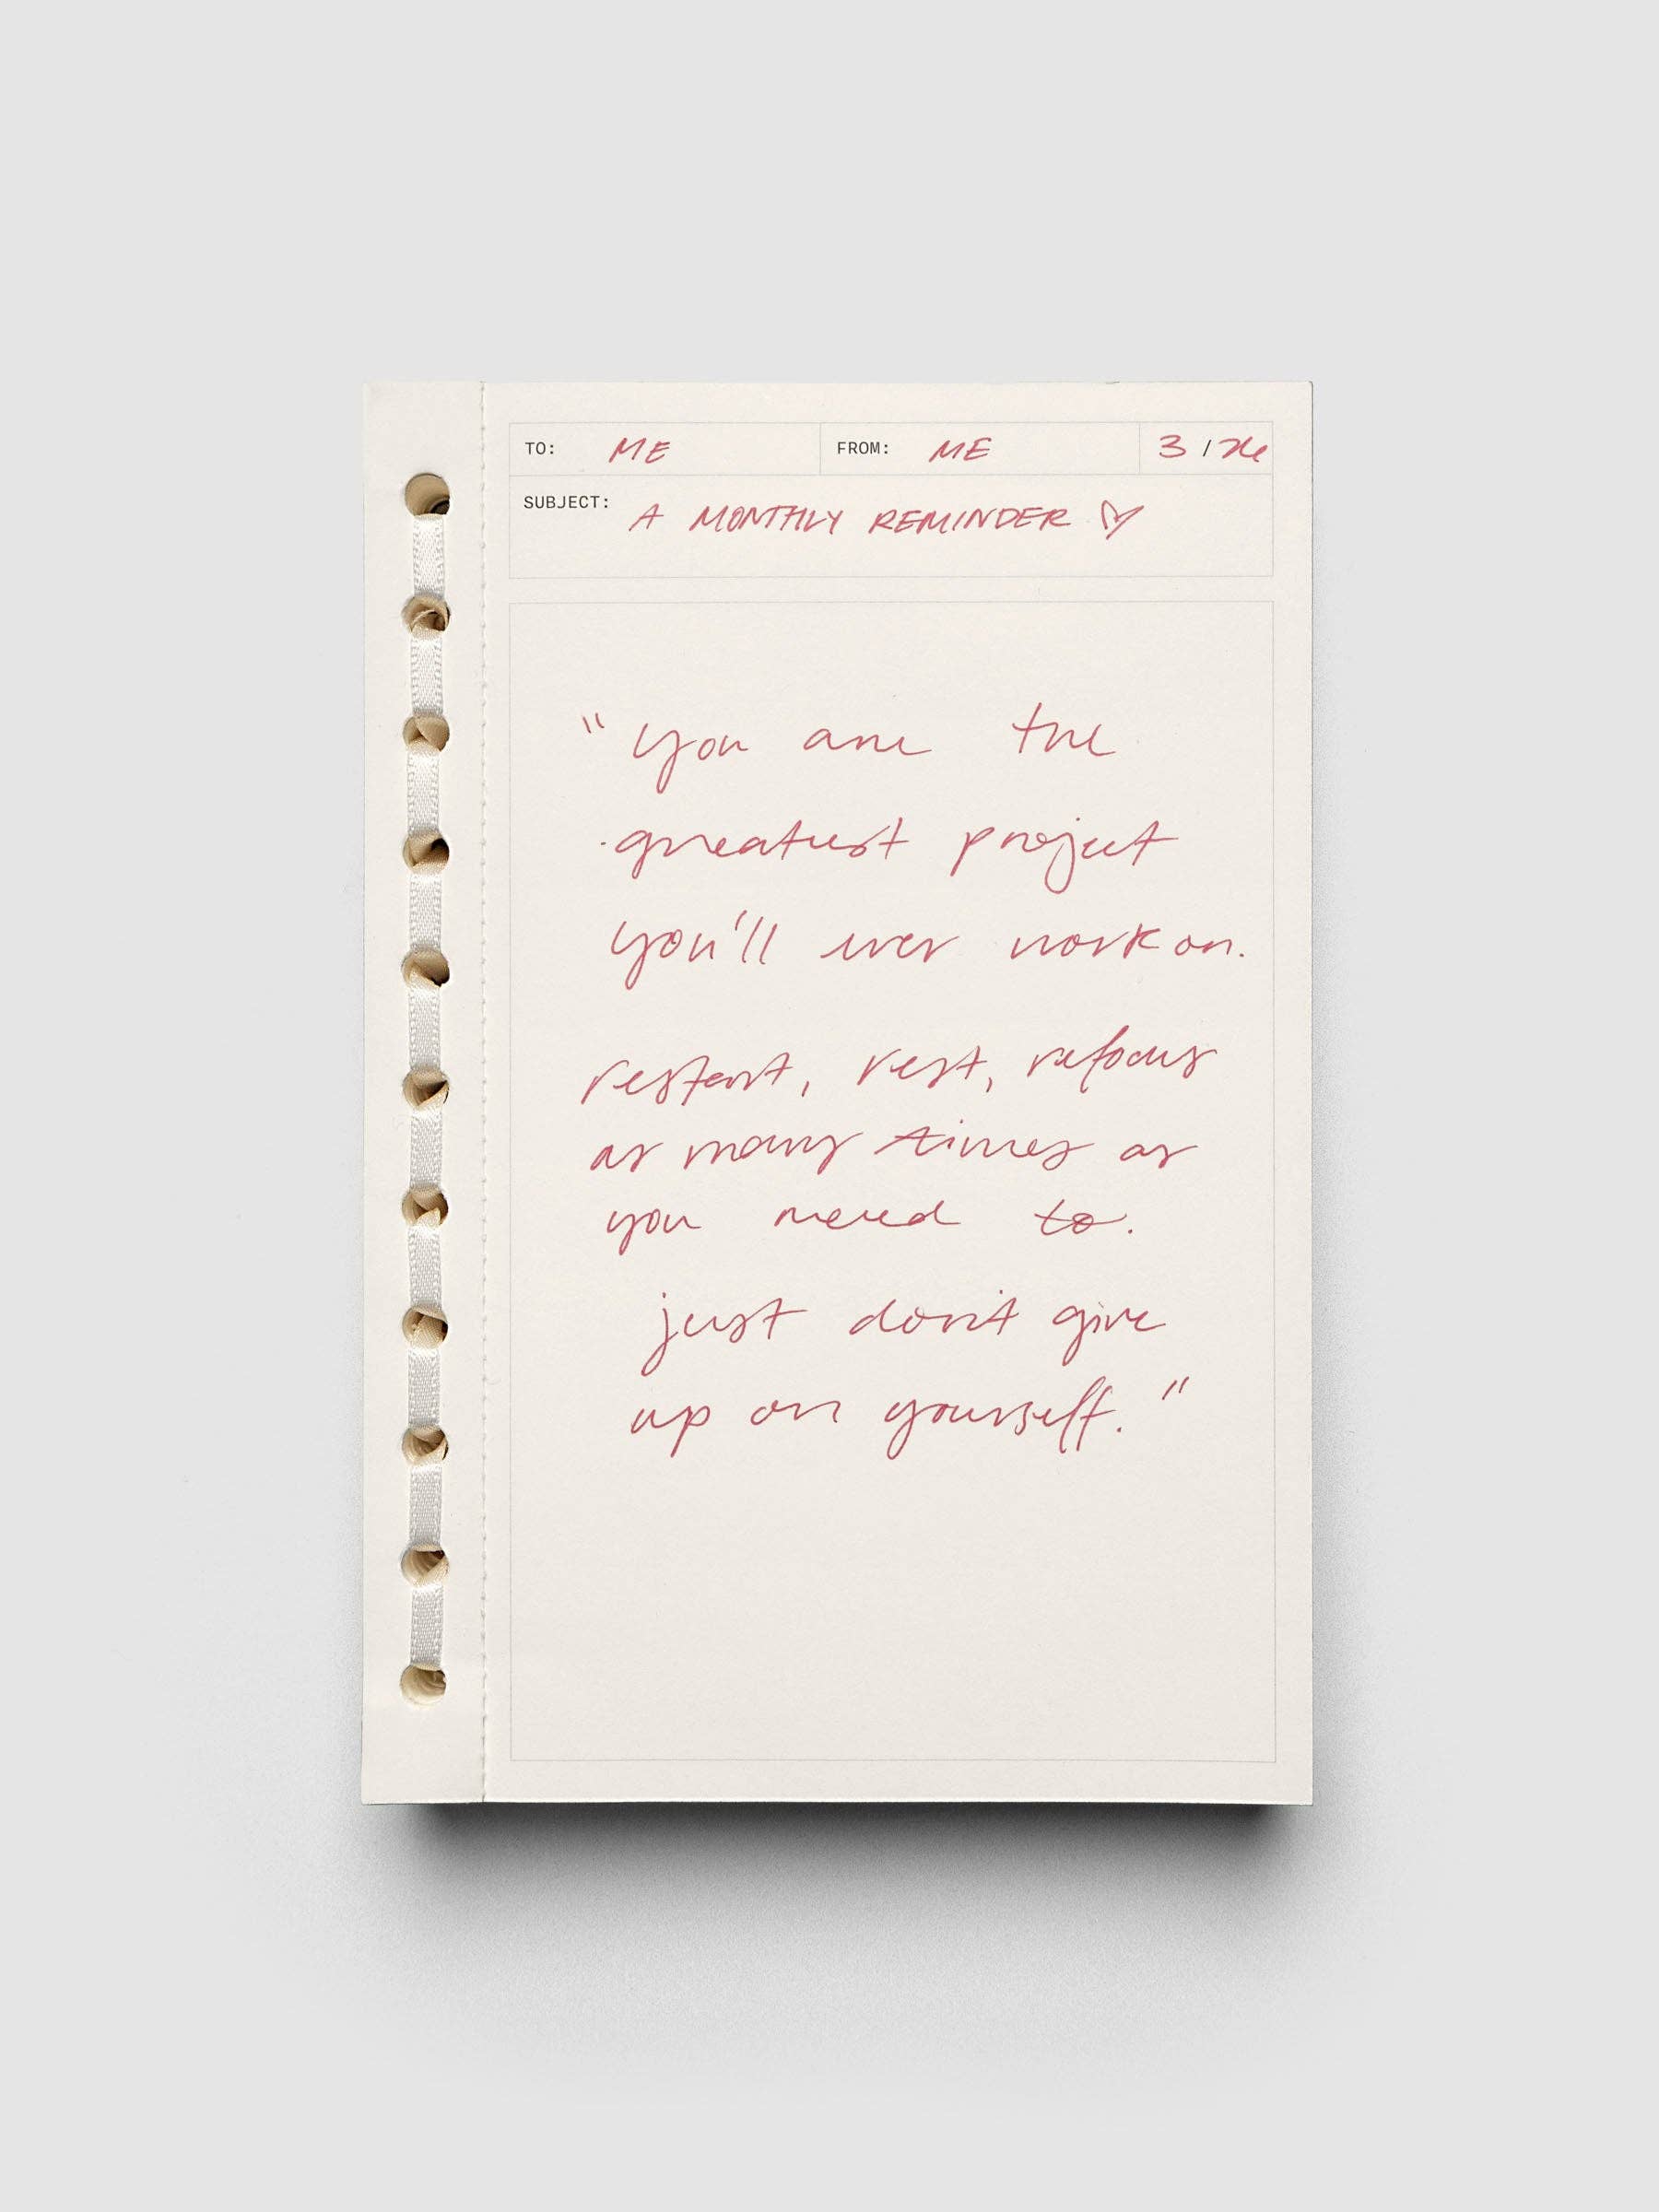 TO: ME FROM: ME 3 / 26
SUBJECT: A MONTHLY REMINDER ♡
"you are the
greatest project
you'll ever work on.
restart, rest, refocus
as many times as
you need to.
just don't give
up on yourself."